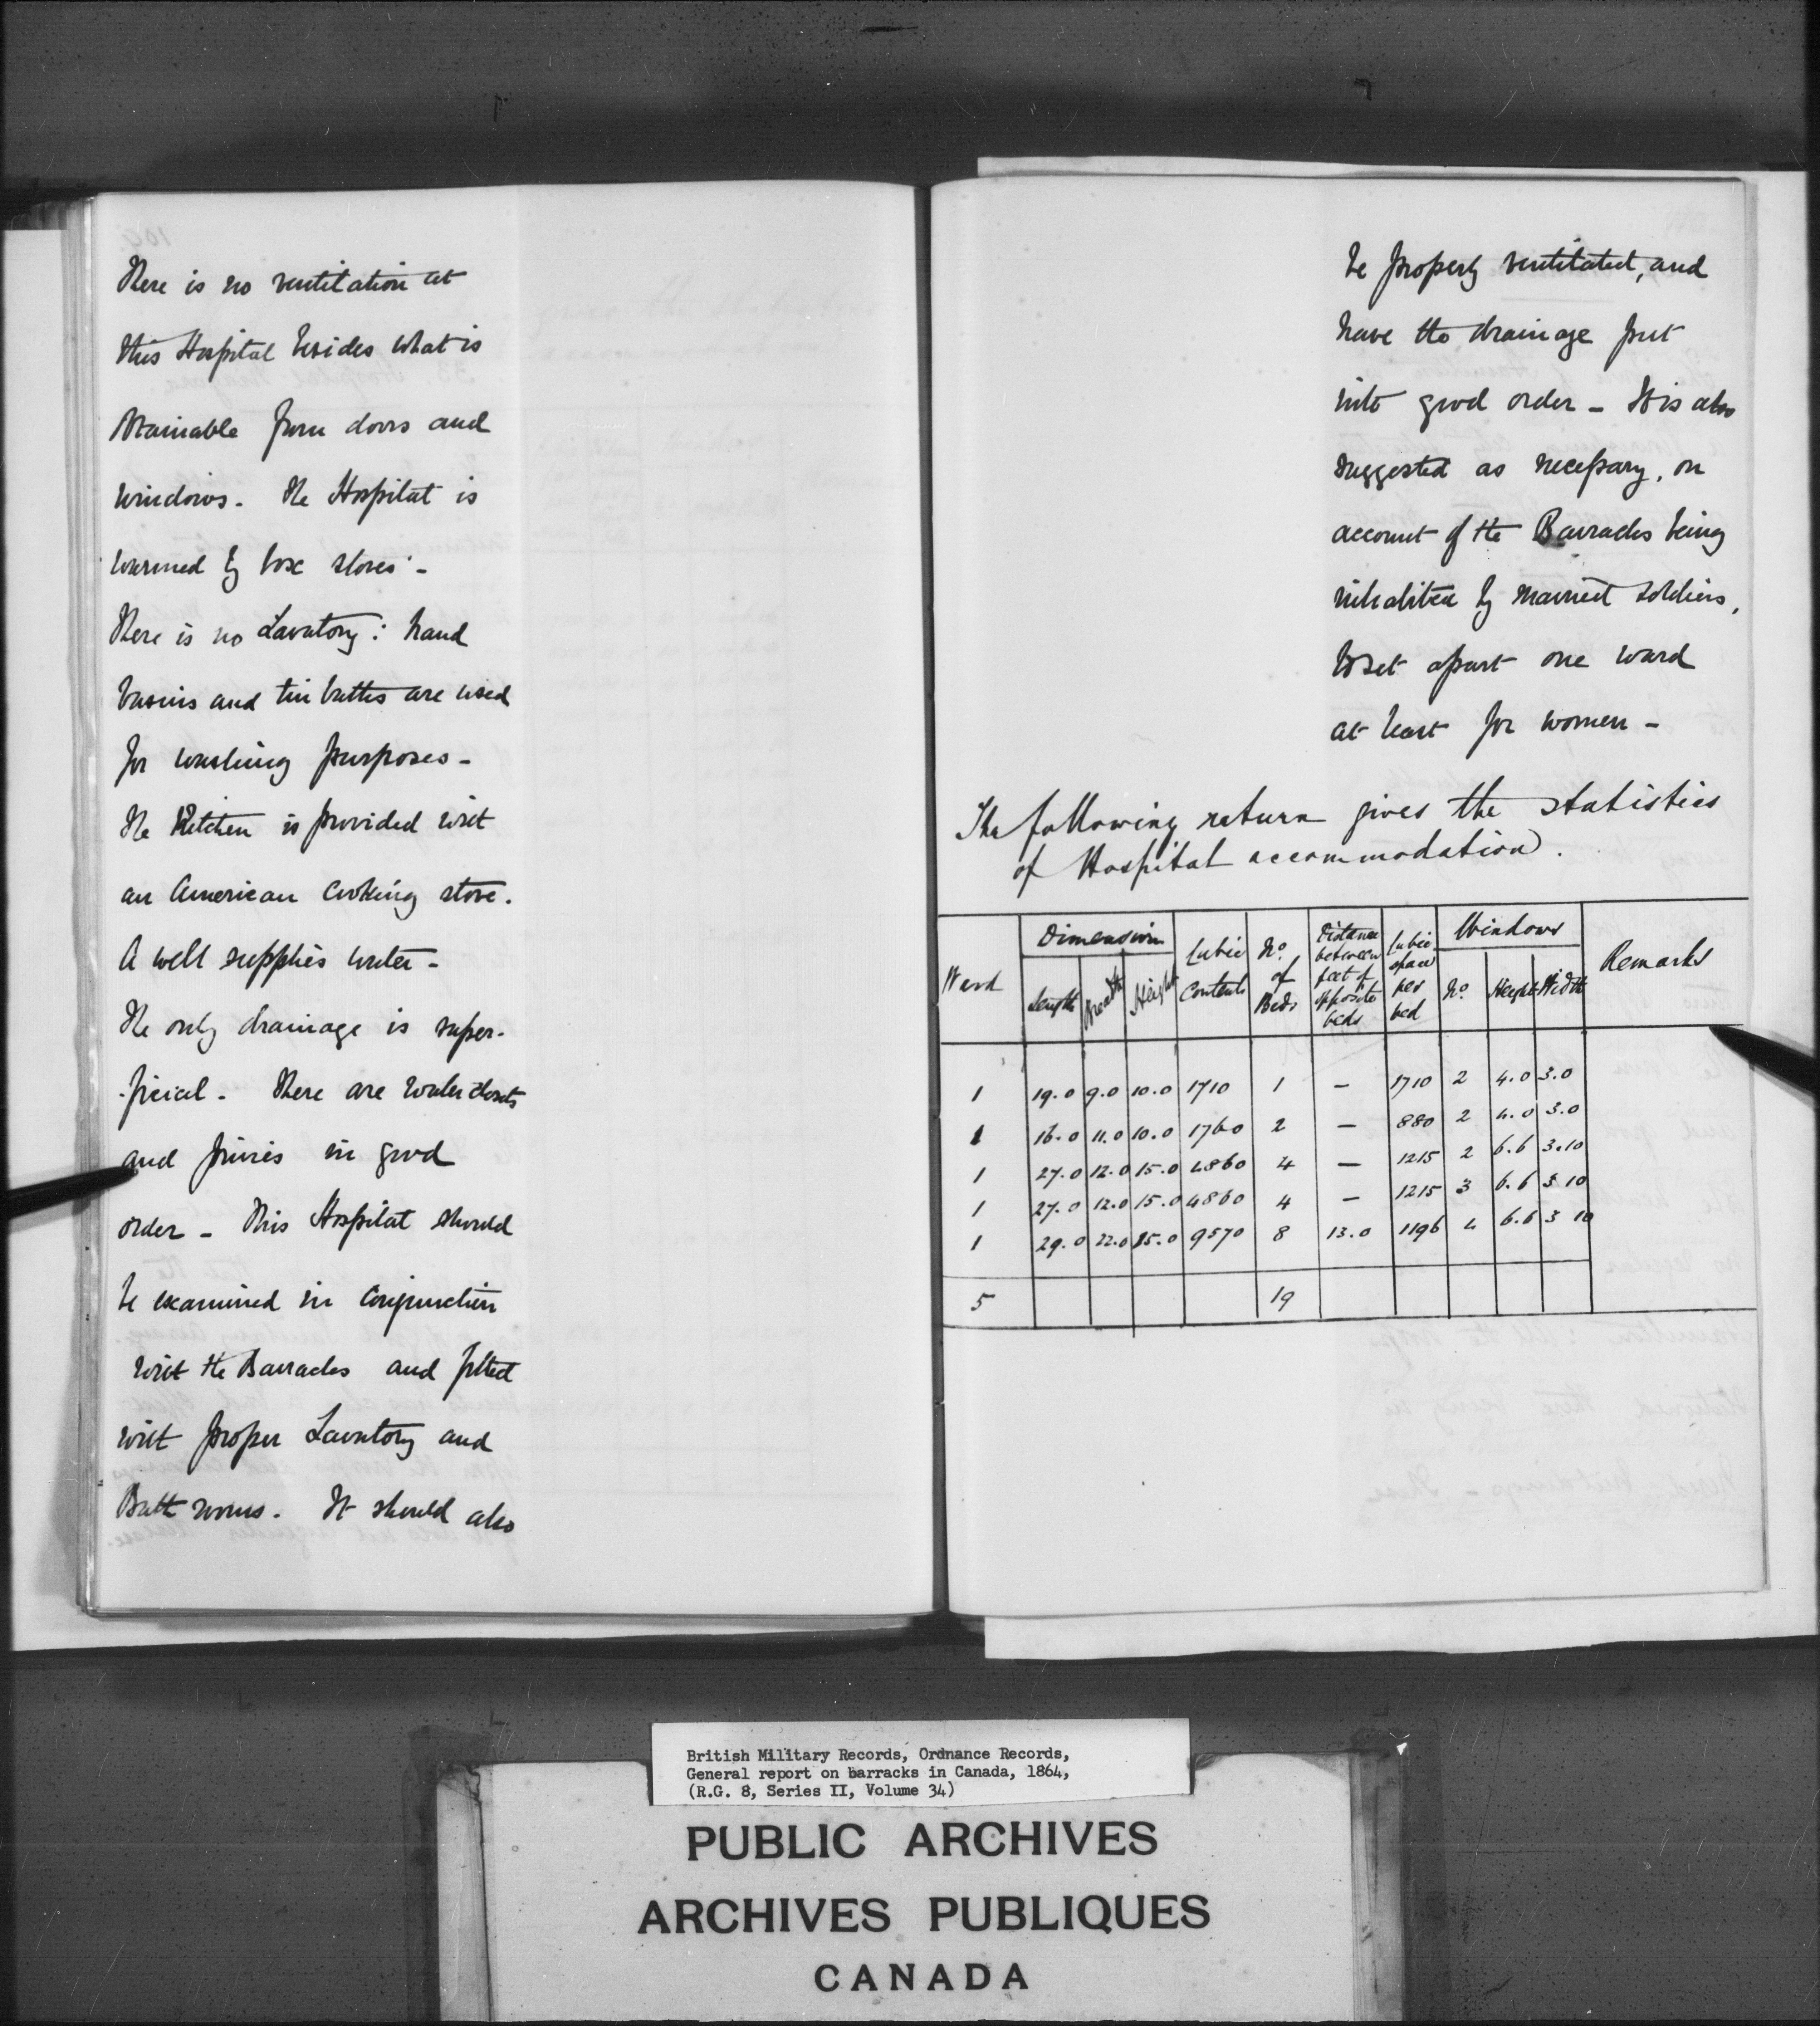 There is no ventilation at
this Hospital besides what is
obtainable from doors and
windows. The Hospital is
warmed by box stoves -
There is no Lavatory: hand
basins and tin baths are used
for washing purposes -
The Kitchen is provided with
an American cooking stove.
A well supplies water -
The only drainage is super-
-ficial - There are water closets
and privies in good
order - This Hospital should
be examined in conjunction
with the Barracks and fitted
with proper Lavatory and
Bath rooms. It should also
be properly ventilated, and
have the drainage put
into good order - It is also
suggested as necessary, on
account of the Barracks being
inhabited by married soldiers,
to set apart one ward
at least for women -
The following return gives the statistics
of Hospital accommodation.
Ward Dimension Length Breadth Height Cubic Contents No. of Beds Distance between feet of opposite beds Cubic space per bed Windows No. Height Width Remarks
1 19.0 9.0 10.0 1710 1 - 1710 2 4.0 3.0
1 16.0 11.0 10.0 1760 2 - 880 2 4.0 3.0
1 27.0 12.0 15.0 4860 4 - 1215 2 6.6 3.10
1 27.0 12.0 15.0 4860 4 - 1215 3 6.6 3 10
1 29.0 22.0 15.0 9570 8 13.0 1196 4 6.6 3 10
5 19
British Military Records, Ordnance Records,
General report on barracks in Canada, 1864,
(R.G. 8, Series II, Volume 34)
PUBLIC ARCHIVES
ARCHIVES PUBLIQUES
CANADA